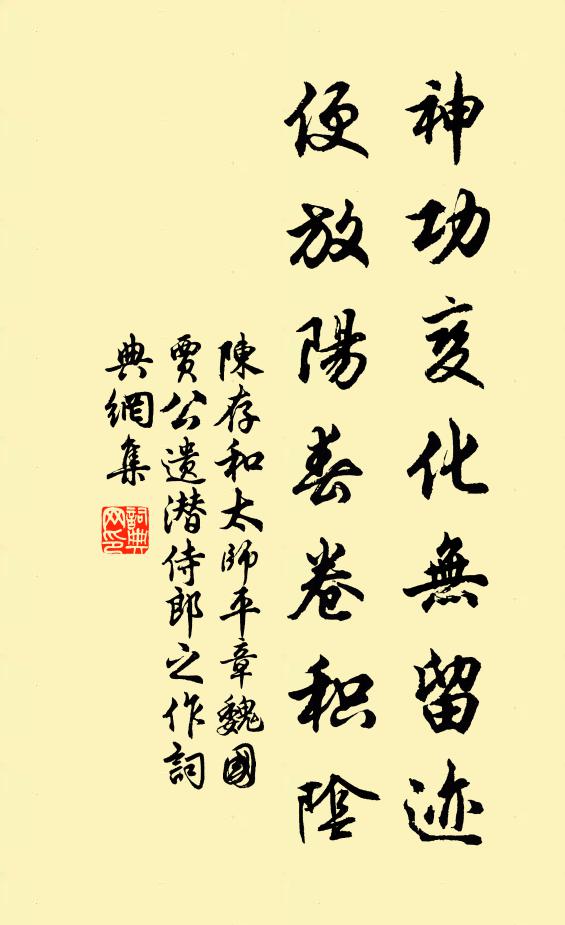 神功变化無留迹
便放陽春卷积陰
陳存和太師平章魏國
賈公遗潜侍郎之作詞
典網集
詞典网印